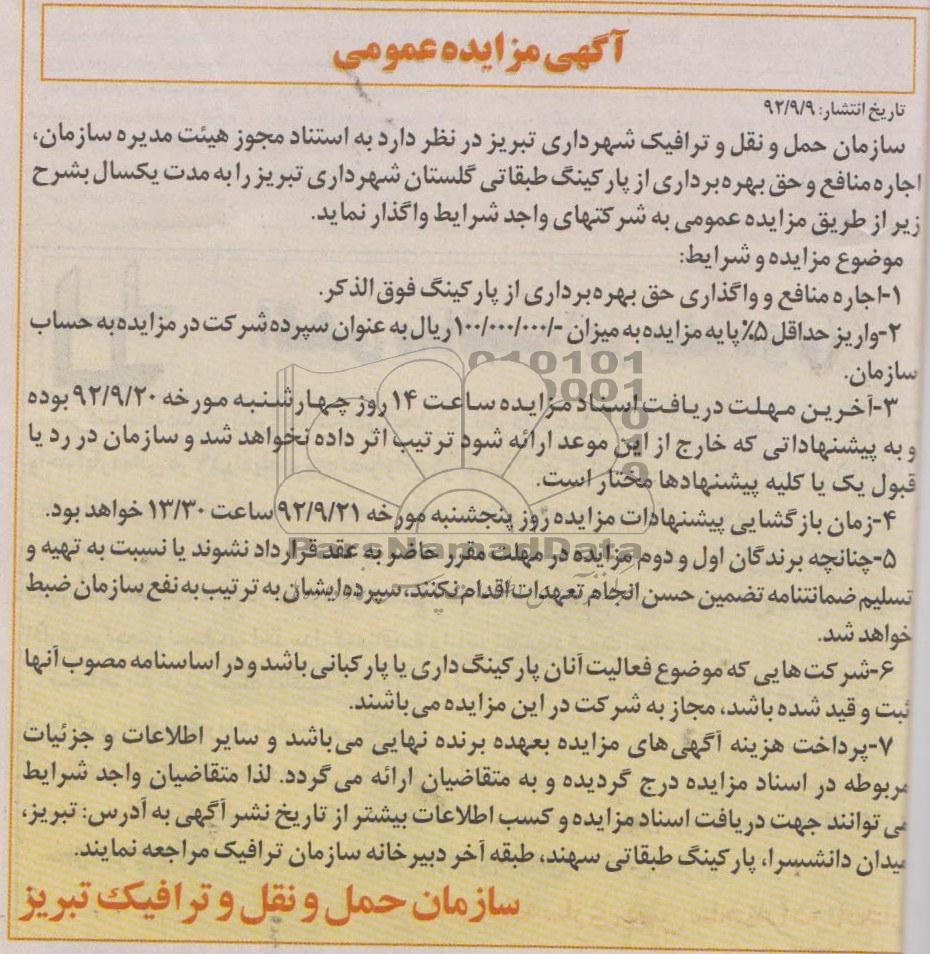 آگهی مزایده عمومی
تاریخ انتشار: ۹۲/۹/۹
سازمان حمل و نقل و ترافیک شهرداری تبریز در نظر دارد به استناد مجوز هیئت مدیره سازمان،
اجاره منافع و حق بهره‌برداری از پارکینگ طبقاتی گلستان شهرداری تبریز را به مدت یکسال بشرح
زیر از طریق مزایده عمومی به شرکتهای واجد شرایط واگذار نماید.
موضوع مزایده و شرایط:
۱-اجاره منافع و واگذاری حق بهره‌برداری از پارکینگ فوق الذکر.
۲-واریز حداقل ۵٪ پایه مزایده به میزان -/۱۰۰/۰۰۰/۰۰۰ ریال به عنوان سپرده شرکت در مزایده به حساب
سازمان.
۳-آخرین مهلت دریافت اسناد مزایده ساعت ۱۴ روز چهارشنبه مورخه ۹۲/۹/۲۰ بوده
و به پیشنهاداتی که خارج از این موعد ارائه شود ترتیب اثر داده نخواهد شد و سازمان در رد یا
قبول یک یا کلیه پیشنهادها مختار است.
۴-زمان بازگشایی پیشنهادات مزایده روز پنجشنبه مورخه ۹۲/۹/۲۱ ساعت ۱۳/۳۰ خواهد بود.
۵-چنانچه برندگان اول و دوم مزایده در مهلت مقرر حاضر به عقد قرارداد نشوند یا نسبت به تهیه و
تسلیم ضمانتنامه تضمین حسن انجام تعهدات اقدام نکنند، سپرده ایشان به ترتیب به نفع سازمان ضبط
خواهد شد.
۶-شرکت‌هایی که موضوع فعالیت آنان پارکینگ‌داری یا پارکبانی باشد و در اساسنامه مصوب آنها
ثبت و قید شده باشد، مجاز به شرکت در این مزایده می‌باشند.
۷-پرداخت هزینه آگهی‌های مزایده بعهده برنده نهایی می‌باشد و سایر اطلاعات و جزئیات
مربوطه در اسناد مزایده درج گردیده و به متقاضیان ارائه می‌گردد. لذا متقاضیان واجد شرایط
می توانند جهت دریافت اسناد مزایده و کسب اطلاعات بیشتر از تاریخ نشر آگهی به آدرس: تبریز،
میدان دانشسرا، پارکینگ طبقاتی سهند، طبقه آخر دبیرخانه سازمان ترافیک مراجعه نمایند.
سازمان حمل و نقل و ترافیک تبریز
ParsNamadData